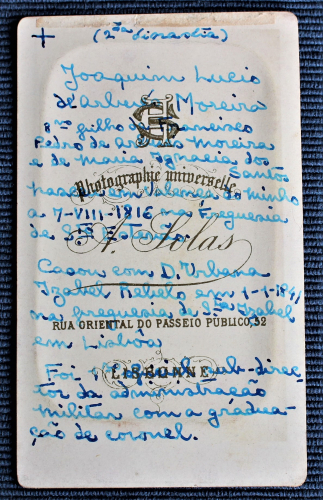 + (2ª dinastia)
Joaquim Lucio
d'Abreu Moreira
8º filho de Francisco
Pedro de Moreira
e de Maria Ignacia dos
Santos
Photographie universelle
em Valença do Minho
a 7-VIII-1816 na Freguesia
de Stº Estevão.
A. Solas
Casou com D. Urbana
Izabel Rebelo em
na freguesia de Stª Izabel
RUA ORIENTAL DO PASSEIO PUBLICO, 32
em Lisboa
Foi sub-direc-
LISBONNE
tor da administração
militar com a gradua-
ção de coronel.